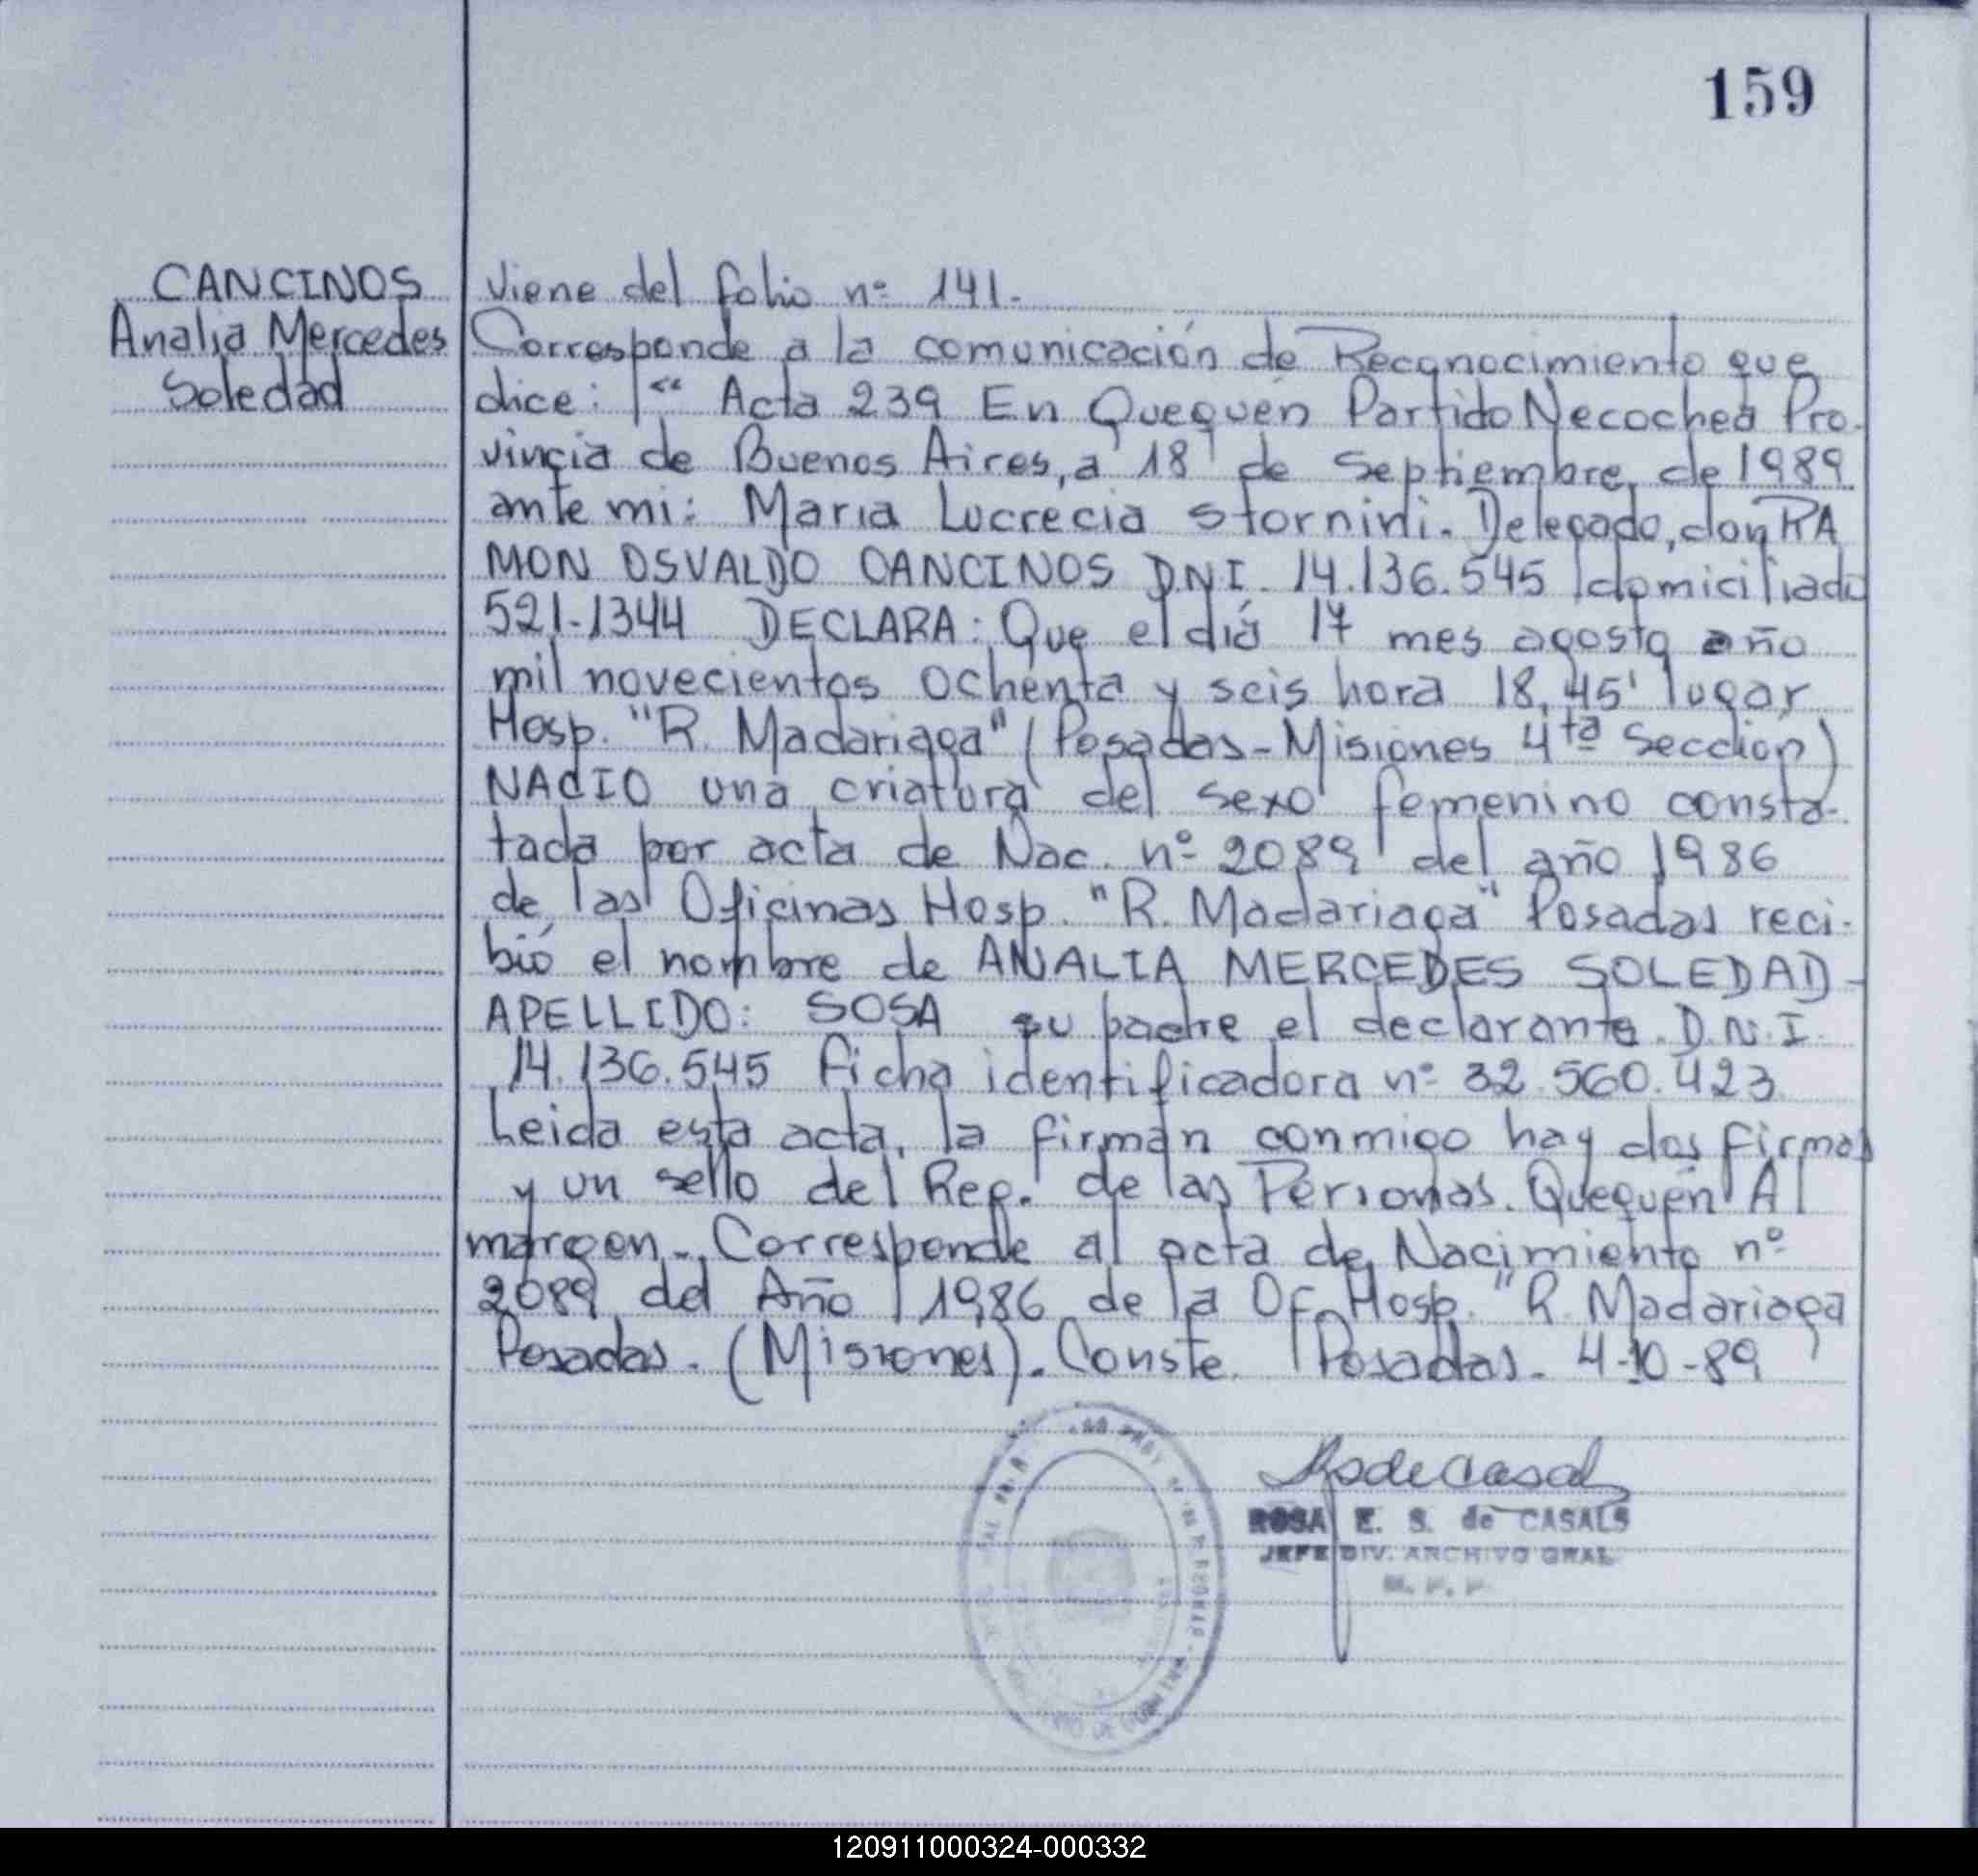 159
CANCINOS
Analia Mercedes
Soledad
Viene del folio nº 141.
Corresponde a la comunicación de Reconocimiento que
dice: "Acta 239 En Quequén Partido Necochea Pro-
vincia de Buenos Aires, a 18 de Septiembre de 1989
ante mi: Maria Lucrecia Stornini. Delegado, don RA
MON OSVALDO CANCINOS D.N.I. 14.136.545 domiciliado
521-1344 DECLARA: Que el diá 17 mes agosto año
mil novecientos ochenta y seis hora 18,45' lugar
Hosp. "R. Madariaga" (Posadas-Misiones 4ta Sección)
NACIO una criatura del sexo femenino consta-
tada por acta de Nac. nº 2089 del año 1986
de las Oficinas Hosp. "R. Madariaga" Posadas reci-
bió el nombre de ANALIA MERCEDES SOLEDAD-
APELLIDO: SOSA su padre el declarante. D.N.I.
14.136.545 ficha identificadora nº 32.560.423
Leida esta acta, la firman conmigo hay dos firmas
y un sello del Reg. de las Personas. Quequén Al
margen. Corresponde al acta de Nacimiento nº
2089 del Año 1986 de la Of. Hosp. "R. Madariaga
Posadas. (Misiones). Conste. Posadas. 4-10-89
ROSA E. S. de CASALS
JEFE DIV. ARCHIVO GRAL.
120911000324-000332